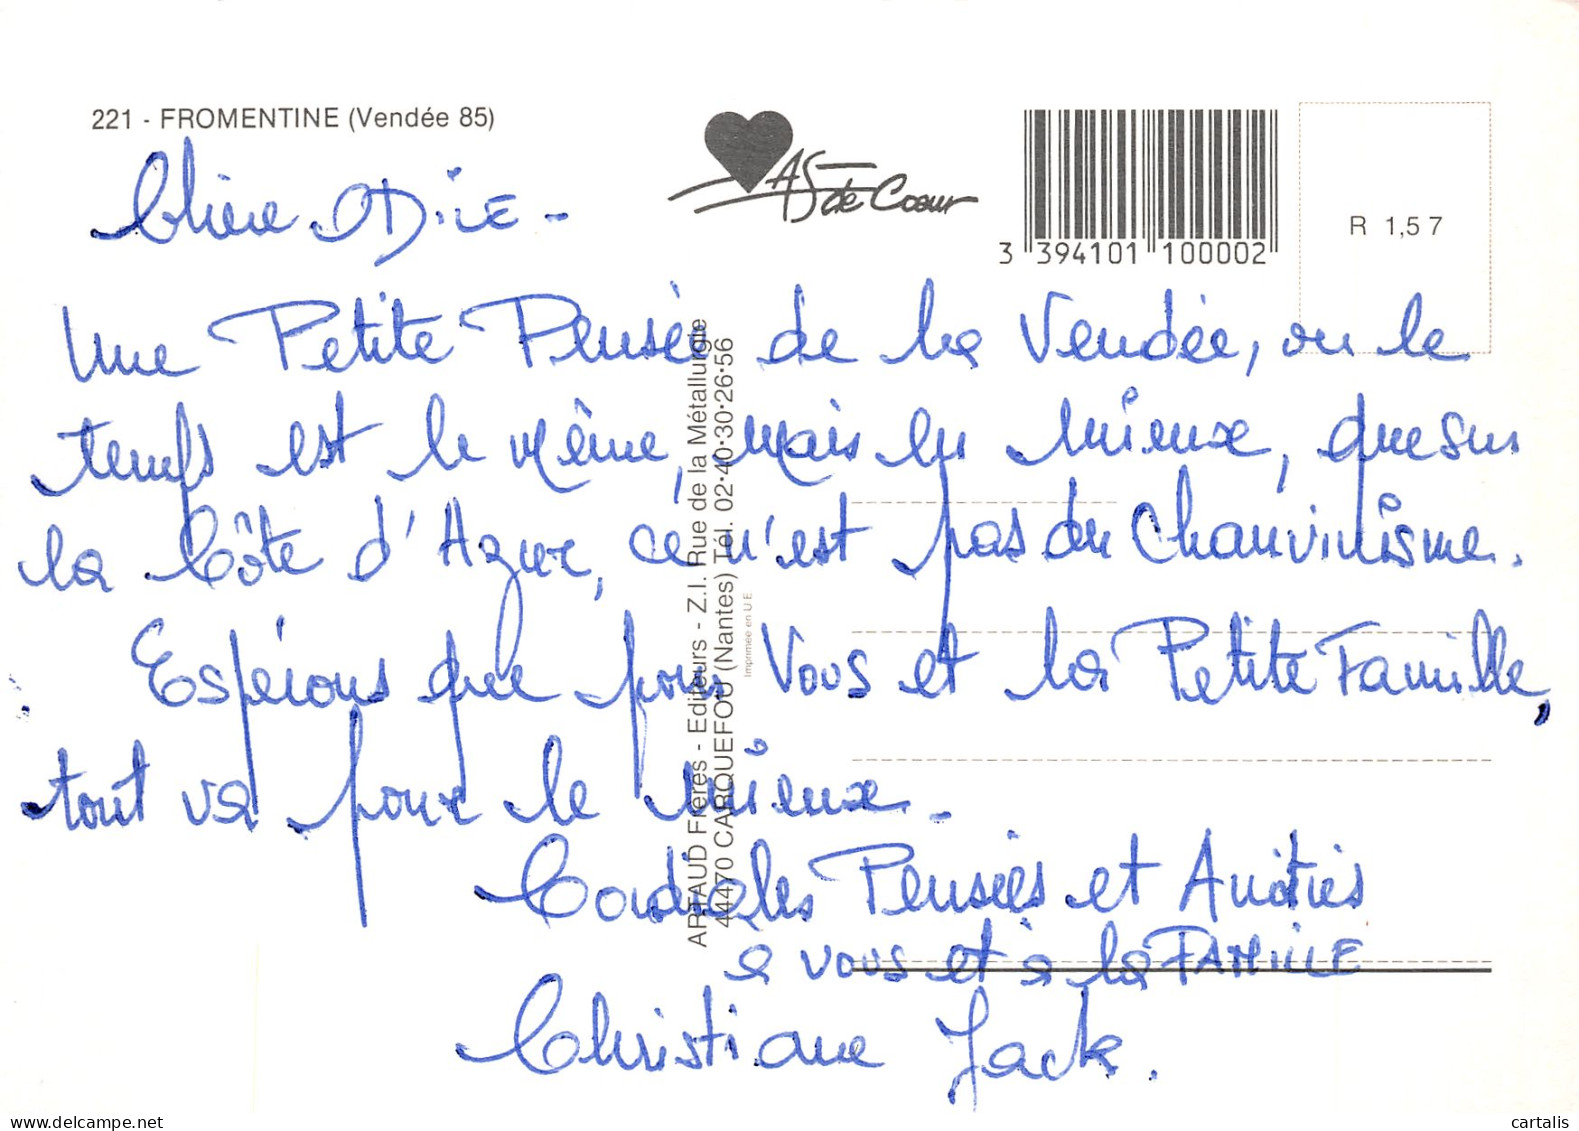 221 - FROMENTINE (Vendée 85)
AS de Coeur
3 394101 100002
R 1,57
Chère ODILE -
Une Petite Pensée de la Vendée, ou le
temps est le même, mais en mieux, que sur
la Côte d'Azur, ce n'est pas du Chauvinisme.
Espérons que pour Vous et la Petite Famille,
tout va pour le mieux -
Cordiales Pensées et Amitiés
a vous et à la FAMILLE
Christiane Jack.
ARTAUD Frères - Editeurs - Z.I. Rue de la Métallurgie
44470 CARQUEFOU (Nantes) Tél. 02·40·30·26·56
Imprimée en U.E.
cartalis
delcampe.net